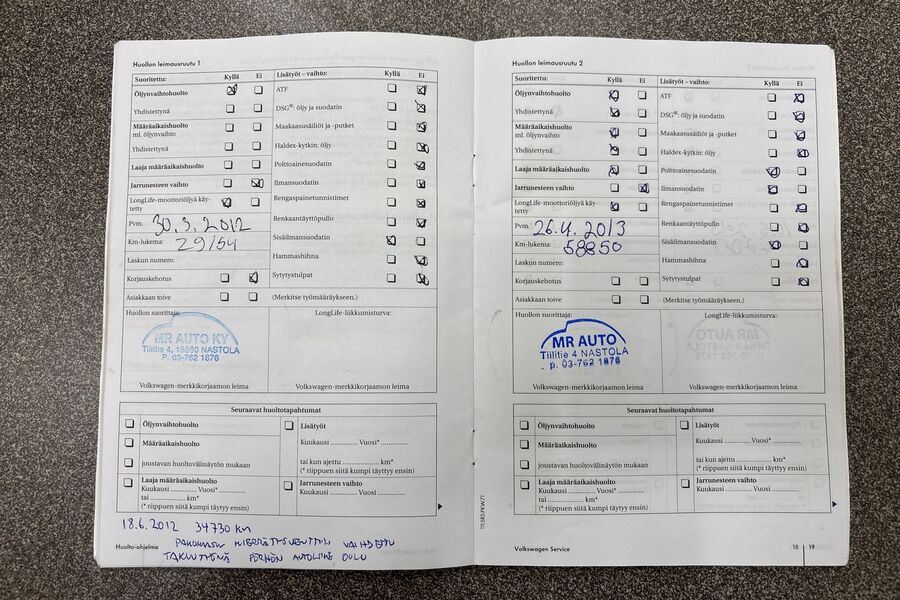 Huollon leimausruutu 1
Suoritettu: Kyllä Ei
Öljynvaihtohuolto
Yhdistettynä
Määräaikaishuolto
ml. öljynvaihto
Yhdistettynä
Laaja määräaikaishuolto
Jarrunesteen vaihto
LongLife-moottoriöljyä käy-
tetty
Pvm. 30.3.2012
Km-lukema: 29154
Laskun numero:
Korjauskehotus
Asiakkaan toive
Lisätyöt – vaihto: Kyllä Ei
ATF
DSG®: öljy ja suodatin
Maakaasusäiliöt ja -putket
Haldex-kytkin: öljy
Polttoainesuodatin
Ilmansuodatin
Rengaspainetunnistimet
Renkaantäyttöpullo
Sisäilmansuodatin
Hammashihna
Sytytystulpat
(Merkitse työmääräykseen.)
Huollon suorittaja:
MR AUTO KY
Tiilitie 4, 15560 NASTOLA
P. 03-762 1876
Volkswagen-merkkikorjaamon leima
LongLife-liikkumisturva:
Volkswagen-merkkikorjaamon leima
Seuraavat huoltotapahtumat
Öljynvaihtohuolto
Määräaikaishuolto
joustavan huoltovälinäytön mukaan
Laaja määräaikaishuolto
Kuukausi .......... Vuosi* ..........
tai .................... km*
(* riippuen siitä kumpi täyttyy ensin)
Lisätyöt
Kuukausi .............. Vuosi* ..............
tai kun ajettu .................. km*
(* riippuen siitä kumpi täyttyy ensin)
Jarrunesteen vaihto
Kuukausi .......... Vuosi* ..........
18.6.2012 34730 KM
PAKOKAASU KIERRÄTYSVENTTIILI VAIHDETTU
Huolto-ohjelma
TAKUUTYÖNÄ PÖRHÖN AUTOLIIKE OULU
Huollon leimausruutu 2
Suoritettu: Kyllä Ei
Öljynvaihtohuolto
Yhdistettynä
Määräaikaishuolto
ml. öljynvaihto
Yhdistettynä
Laaja määräaikaishuolto
Jarrunesteen vaihto
LongLife-moottoriöljyä käy-
tetty
Pvm. 26.4.2013
Km-lukema: 58850
Laskun numero:
Korjauskehotus
Asiakkaan toive
Lisätyöt – vaihto: Kyllä Ei
ATF
DSG®: öljy ja suodatin
Maakaasusäiliöt ja -putket
Haldex-kytkin: öljy
Polttoainesuodatin
Ilmansuodatin
Rengaspainetunnistimet
Renkaantäyttöpullo
Sisäilmansuodatin
Hammashihna
Sytytystulpat
(Merkitse työmääräykseen.)
Huollon suorittaja:
MR AUTO
Tiilitie 4 NASTOLA
p. 03-762 1876
Volkswagen-merkkikorjaamon leima
LongLife-liikkumisturva:
Volkswagen-merkkikorjaamon leima
Seuraavat huoltotapahtumat
Öljynvaihtohuolto
Määräaikaishuolto
joustavan huoltovälinäytön mukaan
Laaja määräaikaishuolto
Kuukausi .......... Vuosi* ..........
tai .................... km*
(* riippuen siitä kumpi täyttyy ensin)
Lisätyöt
Kuukausi .............. Vuosi* ..............
tai kun ajettu .................. km*
(* riippuen siitä kumpi täyttyy ensin)
Jarrunesteen vaihto
Kuukausi .......... Vuosi* ..........
Volkswagen Service
18 19